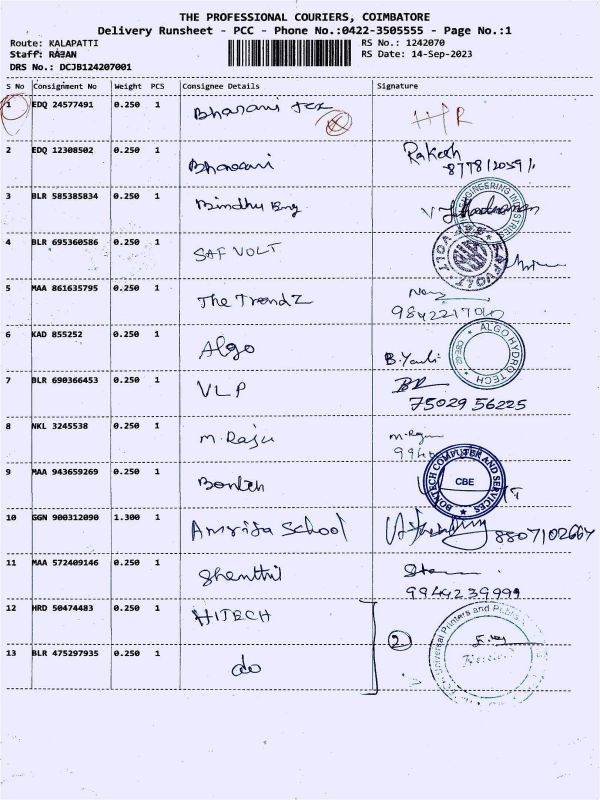 THE PROFESSIONAL COURIERS, COIMBATORE
Delivery Runsheet - PCC - Phone No.:0422-3505555 - Page No.:1
Route: KALAPATTI RS No.: 1242070
Staff: RAJAN RS Date: 14-Sep-2023
DRS No.: DCJB124207001
S No Consignment No Weight PCS Consignee Details Signature
1 EDQ 24577491 0.250 1 Bharani Tex
2 EDQ 12308502 0.250 1 Bharani Rakesh
3 BLR 585385834 0.250 1 Bindhu Eng ENGINEERING INDUSTRIES
4 BLR 695360586 0.250 1 SAF VOLT SAFVOLT
5 MAA 861635795 0.250 1 The TrendZ
6 KAD 855252 0.250 1 Algo ALGO HYDRO TECH CBE-62
7 BLR 690366453 0.250 1 VLP
75029 56225
8 NKL 3245538 0.250 1 M. Raju M. Raju
9 MAA 943659269 0.250 1 Bontch BONTECH COMPUTER AND SERVICES CBE
10 GGN 900312090 1.300 1 Amrita School 8807102667
11 MAA 572409146 0.250 1 Shenthil
9944239999
12 HRD 50474483 0.250 1 HITECH Universal Printers and
13 BLR 475297935 0.250 1 do 2